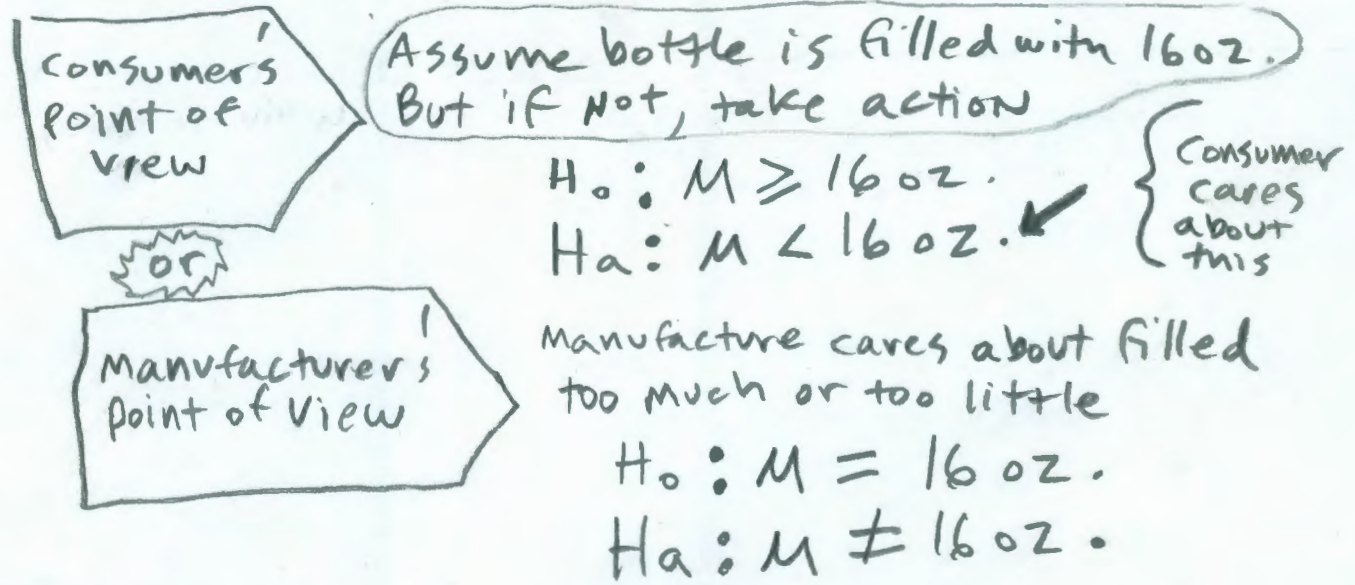 Consumers'
Point of
view
Assume bottle is filled with 16oz.
But if Not, take action
Ho: M ≥ 16 oz.
Ha: M < 16 oz.
Consumer
cares
about
this
or
Manufacturer's
Point of View
Manufacture cares about filled
too much or too little
Ho: M = 16 oz.
Ha: M ≠ 16 oz.